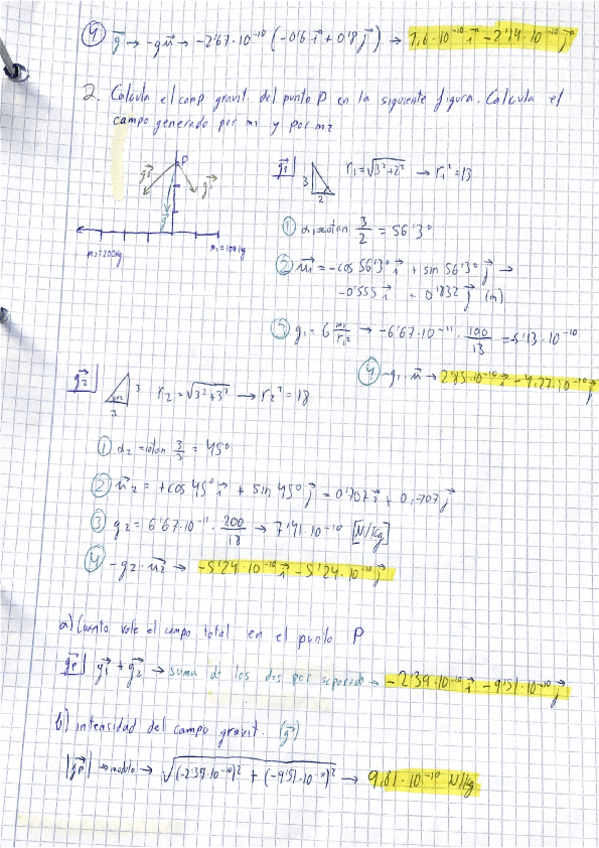 ④ g → -g·u → -2'67·10⁻¹⁰ (-0'6 i + 0'8 j) → 1,6·10⁻¹⁰ i - 2'14·10⁻¹⁰ j
2. Calcula el camp gravit. del punto P en la siguiente figura. Calcula el
campo generado por m1 y por m2
P
g2 g1
m2=200kg m1=100kg
g1 3 2 r1 = √3²+2² → r1² = 13
① α1 = arcotan 3/2 = 56'3°
② u1 = -cos 56'3° i + sin 56'3° j →
-0'555 i + 0'832 j (m)
③ g1 = G m1/r1² → -6'67·10⁻¹¹ · 100/13 = 5'13·10⁻¹⁰
④ -g1·u → 2'85·10⁻¹⁰ i - 4,27·10⁻¹⁰ j
g2 3 3 r2 = √3²+3² → r2² = 18
① α2 = arcotan 3/3 = 45°
② u2 = +cos 45° i + sin 45° j = 0'707 i + 0,707 j
③ g2 = 6'67·10⁻¹¹ · 200/18 → 7'41·10⁻¹⁰ [N/kg]
④ -g2·u2 → -5'24·10⁻¹⁰ i - 5'24·10⁻¹⁰ j
a) Cuanto vale el campo total en el punto P
gp g1 + g2 → suma de los dos por separado → -2'39·10⁻¹⁰ i - 9'51·10⁻¹⁰ j
b) intensidad del campo gravit. (g)
|gp| → modulo → √(-2'39·10⁻¹⁰)² + (-9'51·10⁻¹⁰)² → 9,81·10⁻¹⁰ N/kg